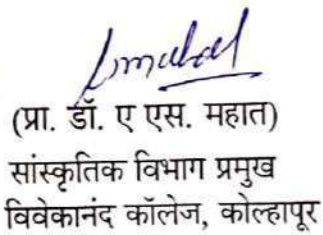 (प्रा. डॉ. ए एस. महात)
सांस्कृतिक विभाग प्रमुख
विवेकानंद कॉलेज, कोल्हापूर